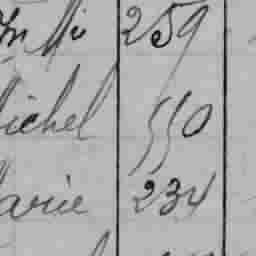 259
ichel 550
arie 234